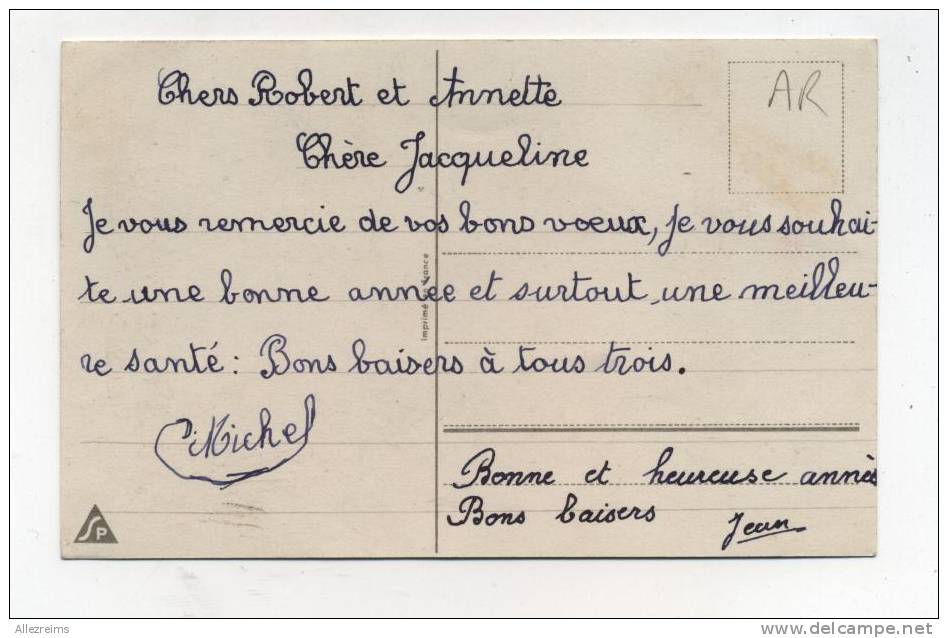 Chers Robert et Annette
AR
Chère Jacqueline
Je vous remercie de vos bons voeux, je vous souhai-
te une bonne année et surtout une meilleu-
re santé : Bons baisers à tous trois.
Michel
Bonne et heureuse année
Bons baisers
Jean
Imprimé en France
SP
Allezreims
www.delcampe.net